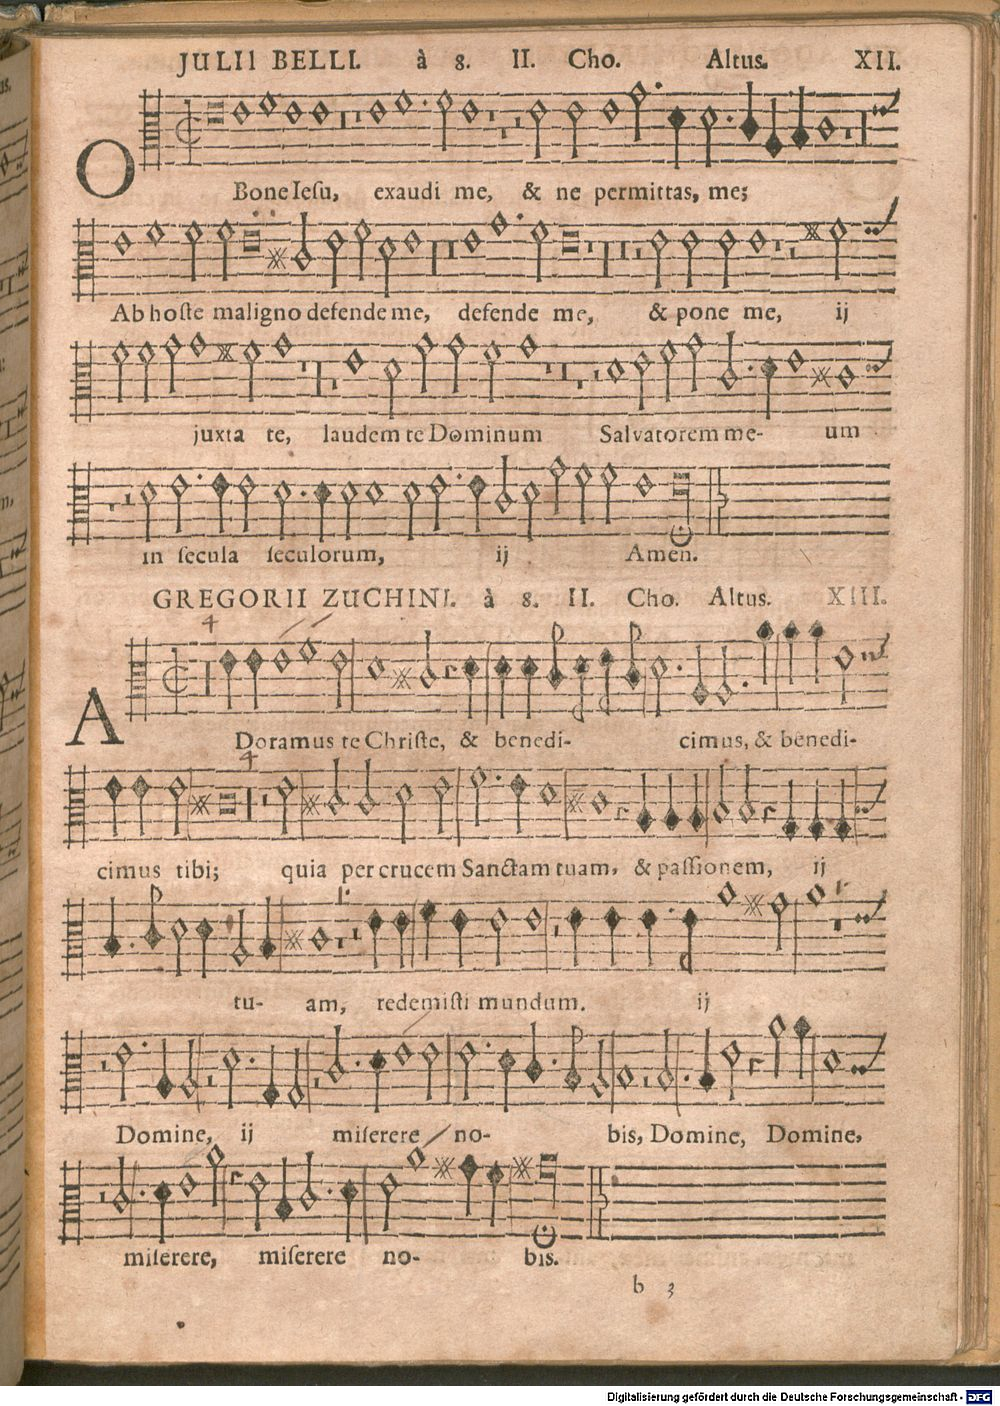 JULII BELLI. à 8. II. Cho. Altus. XII.
O Bone Iesu, exaudi me, & ne permittas, me;
Ab hoſte maligno defende me, defende me, & pone me, ij
juxta te, laudem te Dominum Salvatorem me- um
in ſecula ſeculorum, ij Amen.
GREGORII ZUCHINI. à 8. II. Cho. Altus. XIII.
4
A Doramus te Chriſte, & benedi- cimus, & benedi-
4
cimus tibi; quia per crucem Sanctam tuam, & paſſionem, ij
tu- am, redemiſti mundum. ij
Domine, ij miſerere no- bis, Domine, Domine,
miſerere, miſerere no- bis.
b 3
Digitalisierung gefördert durch die Deutsche Forschungsgemeinschaft - DFG